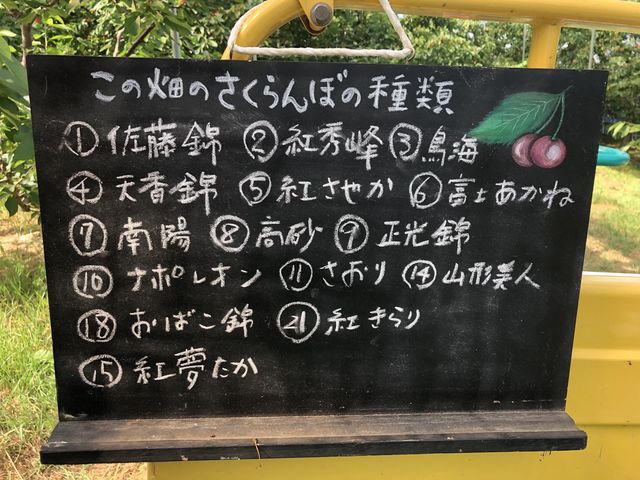 この畑のさくらんぼの種類
①佐藤錦 ②紅秀峰 ③鳥海
④天香錦 ⑤紅さやか ⑥富士あかね
⑦南陽 ⑧高砂 ⑨正光錦
⑩ナポレオン ⑪さおり ⑭山形美人
⑱おばこ錦 ㉑紅きらり
⑮紅夢たか